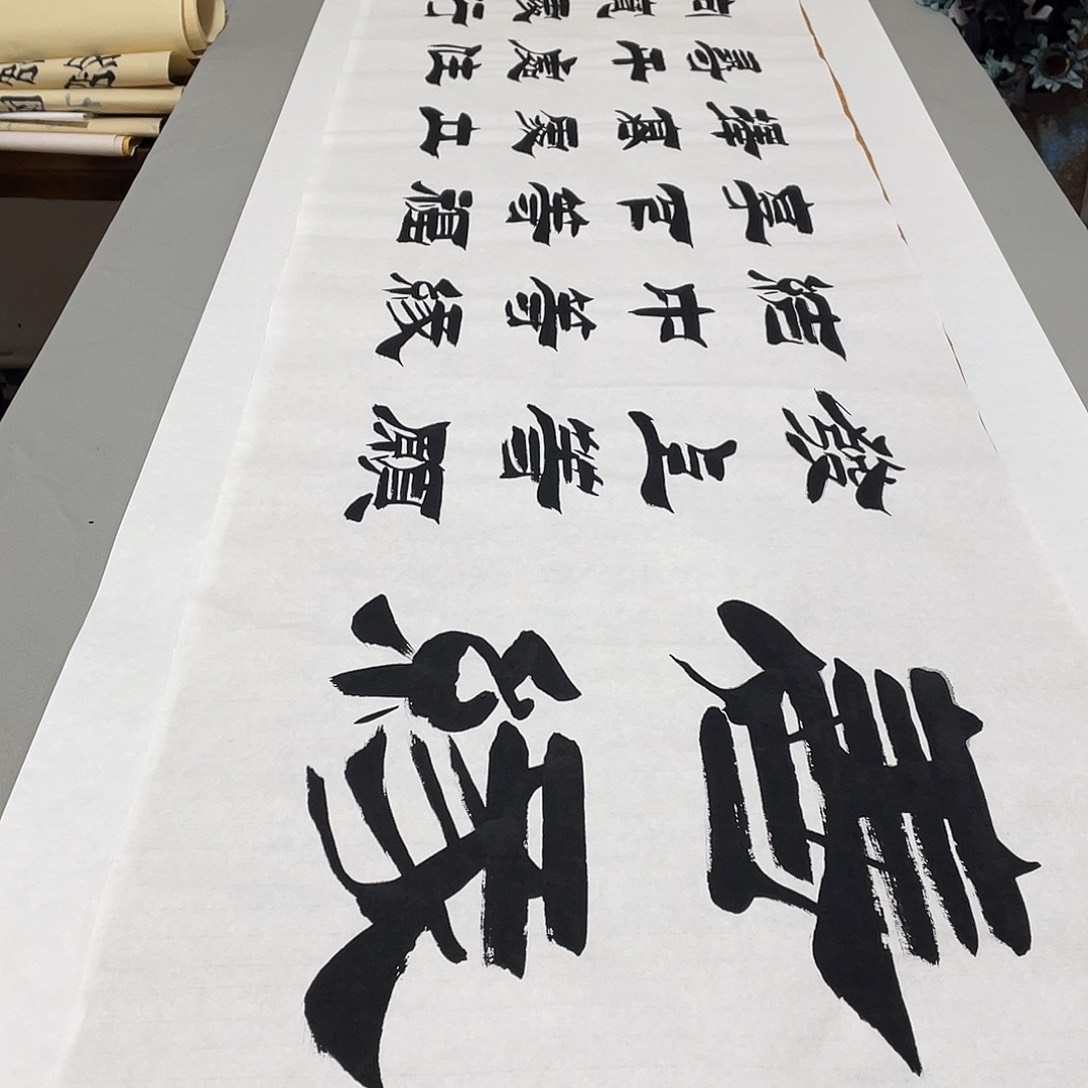 緣
發上等願
結中等緣
享下等福
擇高處立
尋平處住
向寬處行